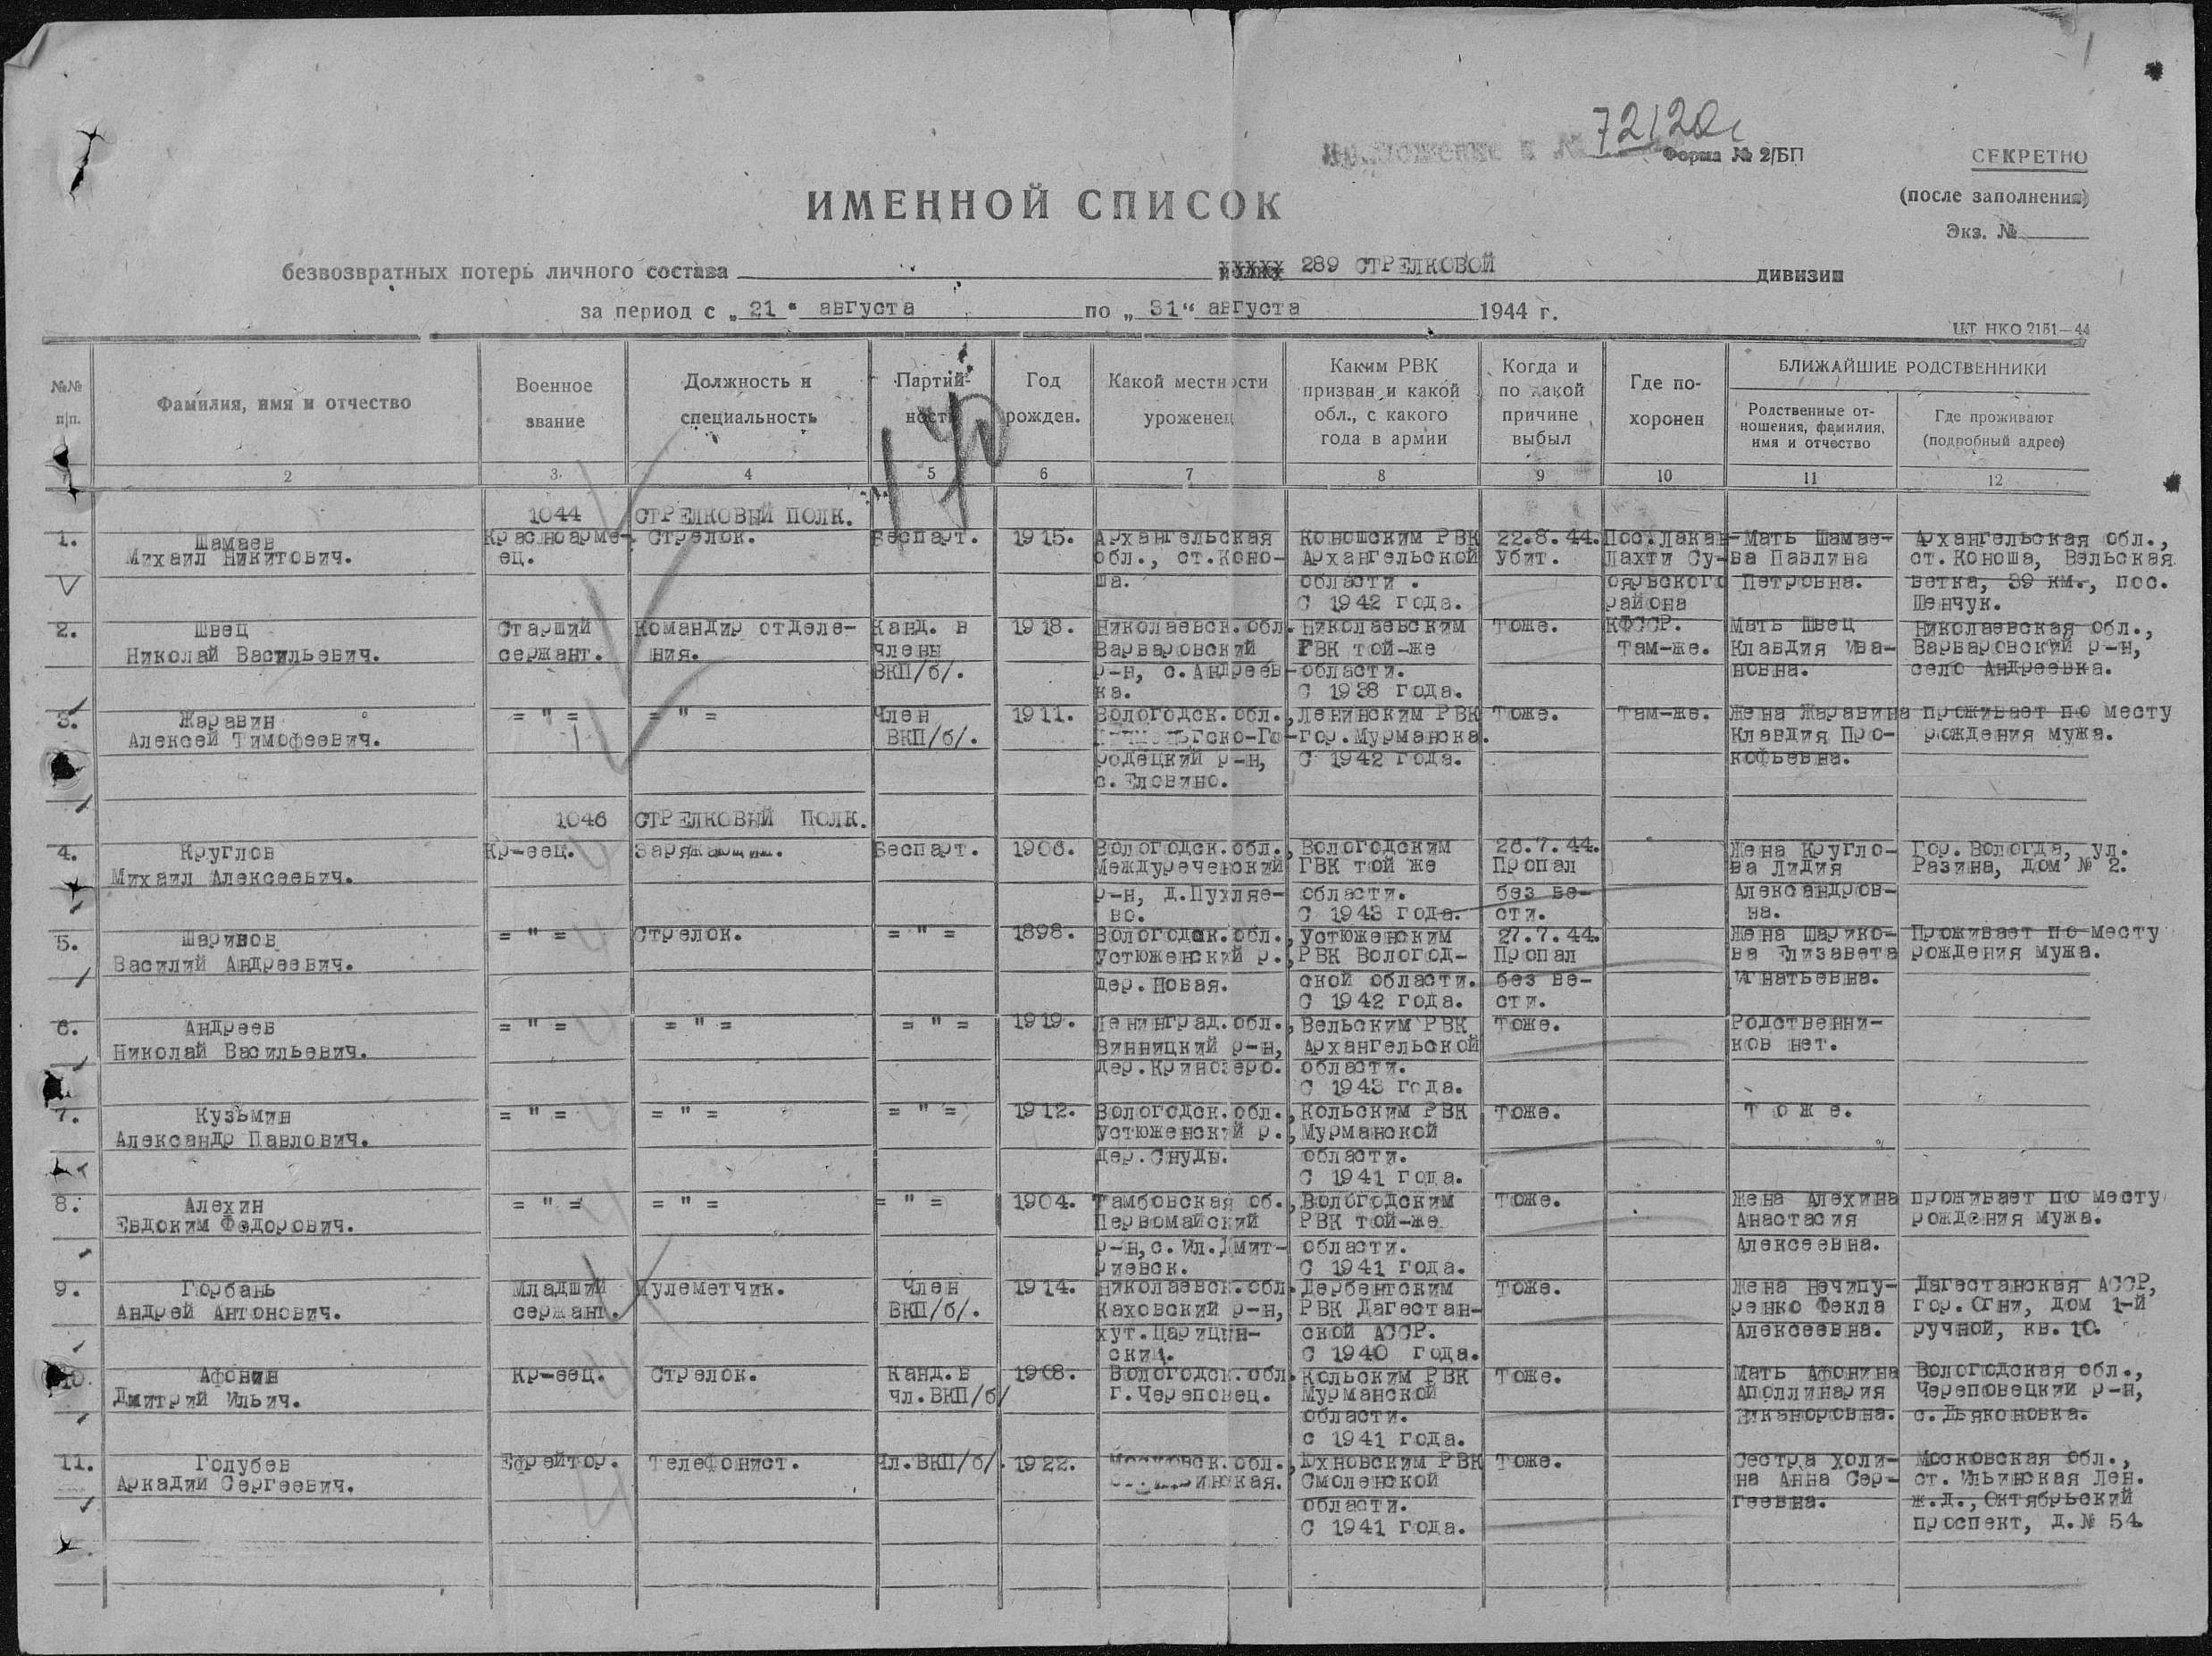 72120с
Форма № 2/БП
СЕКРЕТНО
(после заполнения)
Экз. №
ИМЕННОЙ СПИСОК
безвозвратных потерь личного состава 289 СТРЕЛКОВОЙ дивизии
за период с „ 21 " августа по „ 31 " августа 1944 г.
ЦТ НКО 2151—44
№№ п/п.
Фамилия, имя и отчество
Военное звание
Должность и специальность
Партий-ность
Год рожден.
Какой местности уроженец
Каким РВК призван и какой обл., с какого года в армии
Когда и по какой причине выбыл
Где по-хоронен
БЛИЖАЙШИЕ РОДСТВЕННИКИ
Родственные от-ношения, фамилия, имя и отчество
Где проживают (подробный адрес)
2 3 4 5 6 7 8 9 10 11 12
1044 СТРЕЛКОВЫЙ ПОЛК.
1. Шамаев Красноарме- Стрелок. Беспарт. 1915. Архангельская Коношским РВК 22.8.44. Пос.Лакан- Мать Шамае- Архангельская обл.,
Михаил Никитович. ец. обл., ст.Коно- Архангельской Убит. Лахти Су- ва Павлина ст.Коноша, Вельская
ша. области. оярвского Петровна. ветка, 39 км., пос.
С 1942 года. района Шенчук.
2. Швец Старший Командир отделе- Канд. в 1918. Николаевск.обл. Николаевским Тоже. КФССР. Мать Швец Николаевская обл.,
Николай Васильевич. сержант. ния. члены Варваровский ГВК той-же Там-же. Клавдия Ива- Варваровский р-н,
ВКП/б/. р-н, с.Андреев- области. новна. село Андреевка.
ка. С 1938 года.
3. Жаравин = " = = " = Член 1911. Вологодск.обл., Ленинским РВК Тоже. Там-же. Жена Жаравина проживает по месту
Алексей Тимофеевич. ВКП/б/. гор.Мурманска. Клавдия Про- рождения мужа.
родецкий р-н, С 1942 года. кофьевна.
с.Еловино.
1046 СТРЕЛКОВЫЙ ПОЛК.
4. Круглов Кр-еец. Заряжающий. Беспарт. 1906. Вологодск.обл., Вологодским 26.7.44. Жена Кругло- Гор.Вологда, ул.
Михаил Алексеевич. Междуреченский ГВК той же Пропал ва Лидия Разина, дом № 2.
р-н, д.Пухляе- области. без ве- Александров-
во. С 1943 года. сти. на.
5. Шариков = " = Стрелок. = " = 1898. Вологодск.обл., Устюженским 27.7.44. Жена Шарико- Проживает по месту
Василий Андреевич. Устюженский р., РВК Вологод- Пропал ва Елизавета рождения мужа.
дер.Новая. ской области. без ве- Игнатьевна.
С 1942 года. сти.
6. Андреев = " = = " = = " = 1919. Ленинград.обл., Вельским РВК Тоже. Родственни-
Николай Васильевич. Винницкий р-н, Архангельской ков нет.
дер.Кринозеро. области.
С 1943 года.
7. Кузьмин = " = = " = = " = 1912. Вологодск.обл., Кольским РВК Тоже. Т о ж е.
Александр Павлович. Устюженский р., Мурманской
дер.Снуды. области.
С 1941 года.
8. Алехин = " = = " = = " = 1904. Тамбовская об., Вологодским Тоже. Жена Алехина проживает по месту
Евдоким Федорович. Первомайский РВК той-же Анастасия рождения мужа.
р-н,с.Ил.Дмит- области. Алексеевна.
риевск. С 1941 года.
9. Горбань Младший Пулеметчик. Член 1914. Николаевск.обл. Дербентским Тоже. Жена Нечипу- Дагестанская АССР,
Андрей Антонович. сержант. ВКП/б/. Каховский р-н, РВК Дагестан- ренко Фекла гор.Огни, дом 1-й
хут.Царицин- ской АССР. Алексеевна. ручной, кв.10.
ский. С 1940 года.
10. Афонин Кр-еец. Стрелок. Канд.в 1908. Вологодск.обл. Кольским РВК Тоже. Мать Афонина Вологодская обл.,
Дмитрий Ильич. чл.ВКП/б/ г.Череповец. Мурманской Аполлинария Череповецкий р-н,
области. Никаноровна. с.Дьяконовка.
с 1941 года.
11. Голубев Ефрейтор. Телефонист. Чл.ВКП/б/. 1922. Московск.обл., Юхновским РВК Тоже. Сестра Холи- Московская обл.,
Аркадий Сергеевич. Смоленской на Анна Сер- ст.Ильинская Лен.
области. геевна. ж.д., Октябрьский
С 1941 года. проспект, д.№ 54.